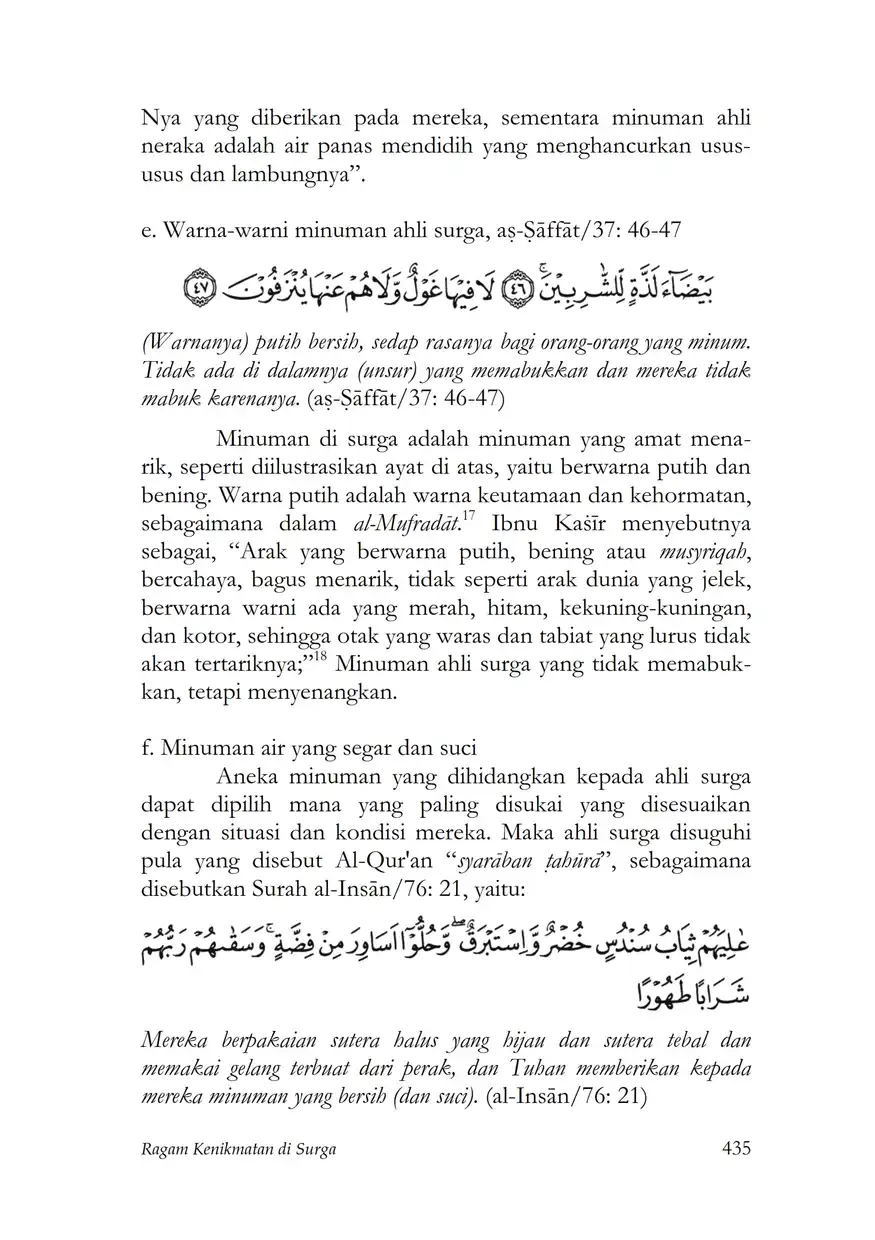 Nya yang diberikan pada mereka, sementara minuman ahli
neraka adalah air panas mendidih yang menghancurkan usus-
usus dan lambungnya”.
e. Warna-warni minuman ahli surga, aṣ-Ṣāffāt/37: 46-47
بَيْضَاۤءَ لَذَّةٍ لِّلشّٰرِبِيْنَۚ ۝٤٦ لَا فِيْهَا غَوْلٌ وَّلَا هُمْ عَنْهَا يُنْزَفُوْنَ ۝٤٧
(Warnanya) putih bersih, sedap rasanya bagi orang-orang yang minum.
Tidak ada di dalamnya (unsur) yang memabukkan dan mereka tidak
mabuk karenanya. (aṣ-Ṣāffāt/37: 46-47)
Minuman di surga adalah minuman yang amat mena-
rik, seperti diilustrasikan ayat di atas, yaitu berwarna putih dan
bening. Warna putih adalah warna keutamaan dan kehormatan,
sebagaimana dalam al-Mufradāt.17 Ibnu Kaṡīr menyebutnya
sebagai, “Arak yang berwarna putih, bening atau musyriqah,
bercahaya, bagus menarik, tidak seperti arak dunia yang jelek,
berwarna warni ada yang merah, hitam, kekuning-kuningan,
dan kotor, sehingga otak yang waras dan tabiat yang lurus tidak
akan tertariknya;”18 Minuman ahli surga yang tidak memabuk-
kan, tetapi menyenangkan.
f. Minuman air yang segar dan suci
Aneka minuman yang dihidangkan kepada ahli surga
dapat dipilih mana yang paling disukai yang disesuaikan
dengan situasi dan kondisi mereka. Maka ahli surga disuguhi
pula yang disebut Al-Qur'an “syarāban ṭahūrā”, sebagaimana
disebutkan Surah al-Insān/76: 21, yaitu:
عٰلِيَهُمْ ثِيَابُ سُنْدُسٍ خُضْرٌ وَّاِسْتَبْرَقٌۖ وَّحُلُّوْٓا اَسَاوِرَ مِنْ فِضَّةٍۚ وَسَقٰىهُمْ رَبُّهُمْ
شَرَابًا طَهُوْرًا
Mereka berpakaian sutera halus yang hijau dan sutera tebal dan
memakai gelang terbuat dari perak, dan Tuhan memberikan kepada
mereka minuman yang bersih (dan suci). (al-Insān/76: 21)
Ragam Kenikmatan di Surga 435